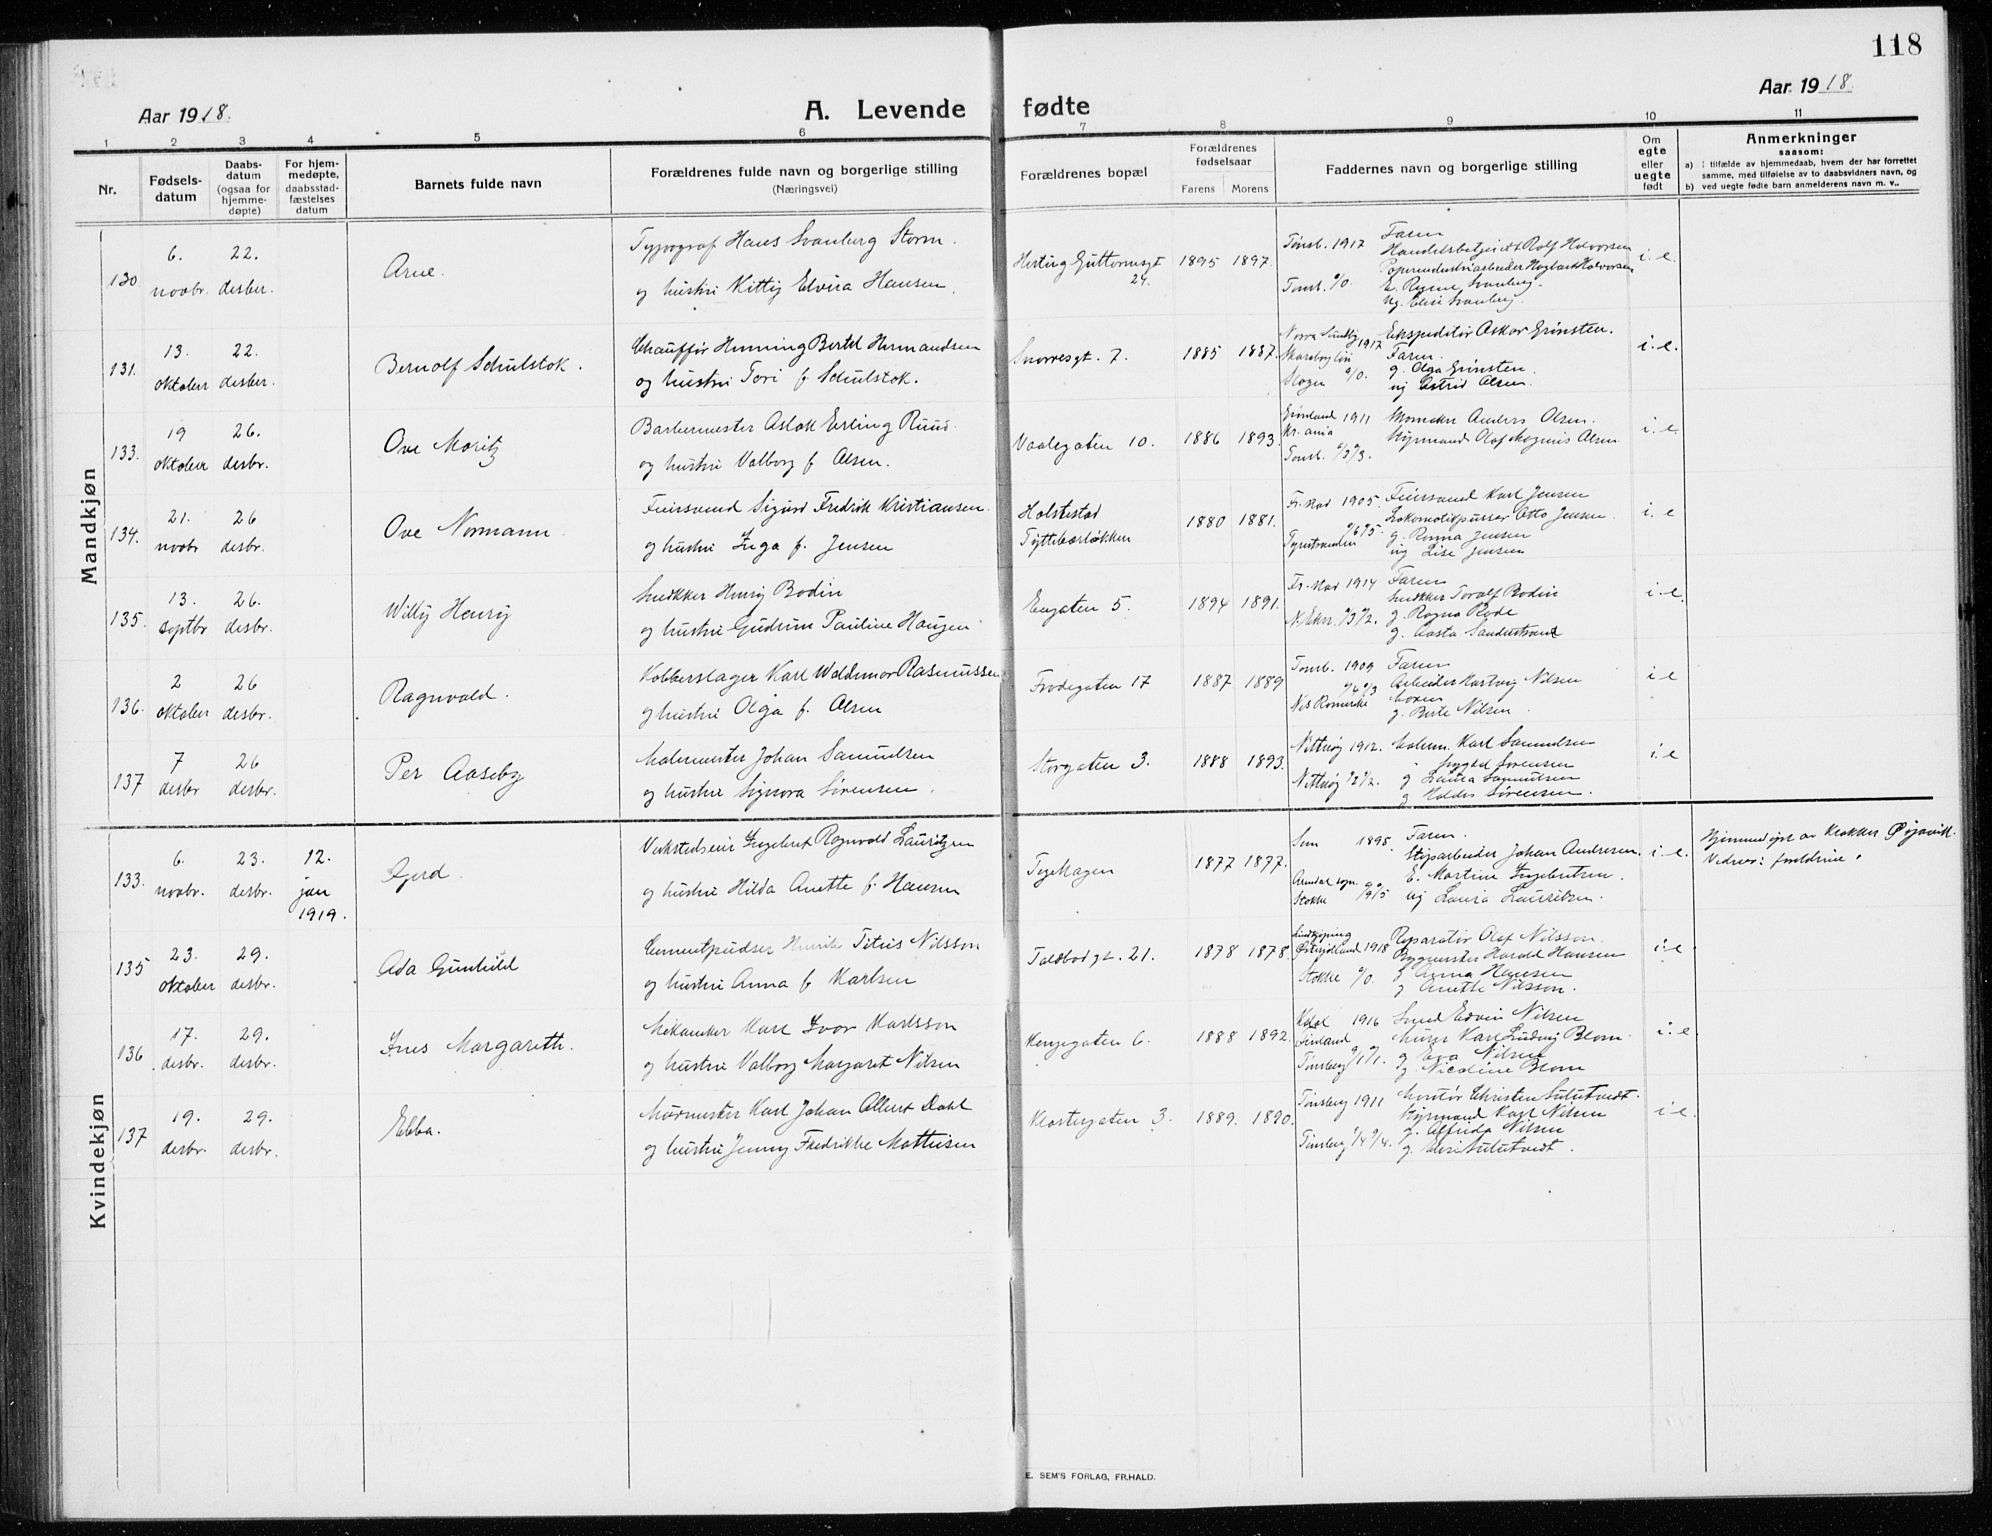 118
Aar 1918.
A. Levende fødte
Aar 1918.
1 2 3 4 5 6 7 8 9 10 11
Nr.
Fødsels-
datum
Daabs-
datum
(ogsaa for
hjemme-
døpte)
For hjem-
medøpte,
daabsstad-
fæstelses
datum
Barnets fulde navn
Forældrenes fulde navn og borgerlige stilling
(Næringsvei)
Forældrenes bopæl
Forældrenes
fødselsaar
Farens Morens
Faddernes navn og borgerlige stilling
Om
egte
eller
uegte
født
Anmerkninger
saasom:
a) I tilfælde av hjemmedaab, hvem der har forrettet
samme, med tilføielse av to daabsvidners navn, og
b) ved uegte fødte barn anmelderens navn m. v..
Mandkjøn
130
6. novbr.
22. desber.
Arne.
Typograf Hans Svanberg Storm.
og hustru Kitty Elvira Hansen.
Guttormsgt
24.
1895 1897.
Tønsb. 1917
Tønsb. 0/0.
Faren
Rolf Halvorsen
i. e.
131.
13. oktober
22. desber.
Bernolf Schulstok.
Chauffør Henning Bertel Hermandsen
og hustru Tori f. Schulstok.
Snorresgt. 7.
1885 1887.
1917
Slagen 0/0.
Ekspeditør Oskar Grinsten.
Faren.
g. Olga Grinsten.
ug Astrid Olsen.
i. e.
133.
19 oktober
26. desbr.
Ove Moritz
Barbermester Aslak Erling Ruud.
og hustru Valborg f Olsen.
Vaalegaten 10.
1886 1893.
Grønland 1911
Kr.ania
Tønsb. 0/3/3.
Anders Olsen.
Styrmand Olaf Magnus Olsen
i. e.
134.
21. novbr
26 desbr.
Ove Normann
Feiersvend Sigurd Fredrik Kristiansen.
og hustru Inga f. Jensen
Holstestad
Tyttebærløkken
1880 1881.
Fr.stad 1905.
Tyristranden 0/6/5.
Feiersvend Karl Jensen
Lokomotivpusser Otto Jensen.
g. Ronna Jensen
ug Lise Jensen
i. e
135.
13. septbr
26. desbr.
Willy Henry
Snekker Henry Bodin
og hustru Gudrun Pauline Haugen
Engaten 5.
1894 1891.
Fr.stad 1914
0/3/2.
Faren
Snekker Toralf Bodin
g. Ragna Røde
g. Aasta Sanderstrand
i. e.
136.
2 oktober
26 desbr.
Ragnvald.
Kobberslager Karl Waldemar Rasmussen
og hustru Olga f. Olsen
Frodegaten 17
1887 1889
Tønsb. 1909
0/4/3
Nes Romerike
Faren
Arbeider Hartvig Nilsen
Moren
g. Berte Nilsen.
i e
137
7 desbr
26 desbr.
Per Aaseby
Malermester Johan Samuelsen
og hustru Signora Sørensen.
Storgaten 3.
1888 1893.
Nøtterøy 1912.
Nøtterøy 0/2/2.
Malerm. Karl Samuelsen
" Sørensen
g Laura Samuelsen
g Haldis Sørensen.
i. e
Kvindekjøn
133.
6. novbr.
23. desbr.
12. jan 1919.
Gjerd.
Verkstedseier Ingebret Ragnvald Lauritzen
og hustru Hilda Anette f. Hansen
Teglhagen
1877 1877.
Sem 1895.
Arendal sogn.
Stokke 0/9/5
Faren.
Skipsarbeider Johan Andresen.
E. Martine Ingebretsen.
ug Laura Lauritzen.
i. e.
Hjemmedøpt av Klokker Øyavik.
Vidner: foreldrene.
135
23. oktober
29. desbr.
Ada Gunhild
Cementpudser Henrik Titus Nilsson
og hustru Anna f Karlsen
Toldbodgt. 21.
1878 1878.
Lindkjøping
Østergøtland 1918
Stokke 0/0.
Reparatør Olaf Nilsson.
Bygmester Harald Hansen
g Anna Hansen
g Anette Nilsson.
i. e
136
17. desbr.
29. desbr.
Ines Margareth.
Mekaniker Karl Ivar Karlsson
og hustru Valborg Margaret Nilsen
Kongegaten 6.
1888 1892.
1916
Finland
Tønsberg 0/1/1.
Smed Edvin Nilsen
Murer Karl Ludvig Blom.
g Eva Nilsen
g. Nicoline Blom
i. e.
137
19. desbr.
29. desbr.
Ebba.
Murmester Karl Johan Albert Dahl
og hustru Jenny Fredrikke Mathisen
Klostergaten 3.
1889. 1890.
Tønsberg 1911
Tønsberg 0/4/4.
Montør Christen
Styrmand Karl Nilsen
g. Alfrida Nilsen
i. e.
E. SEM'S FORLAG, FR.HALD.